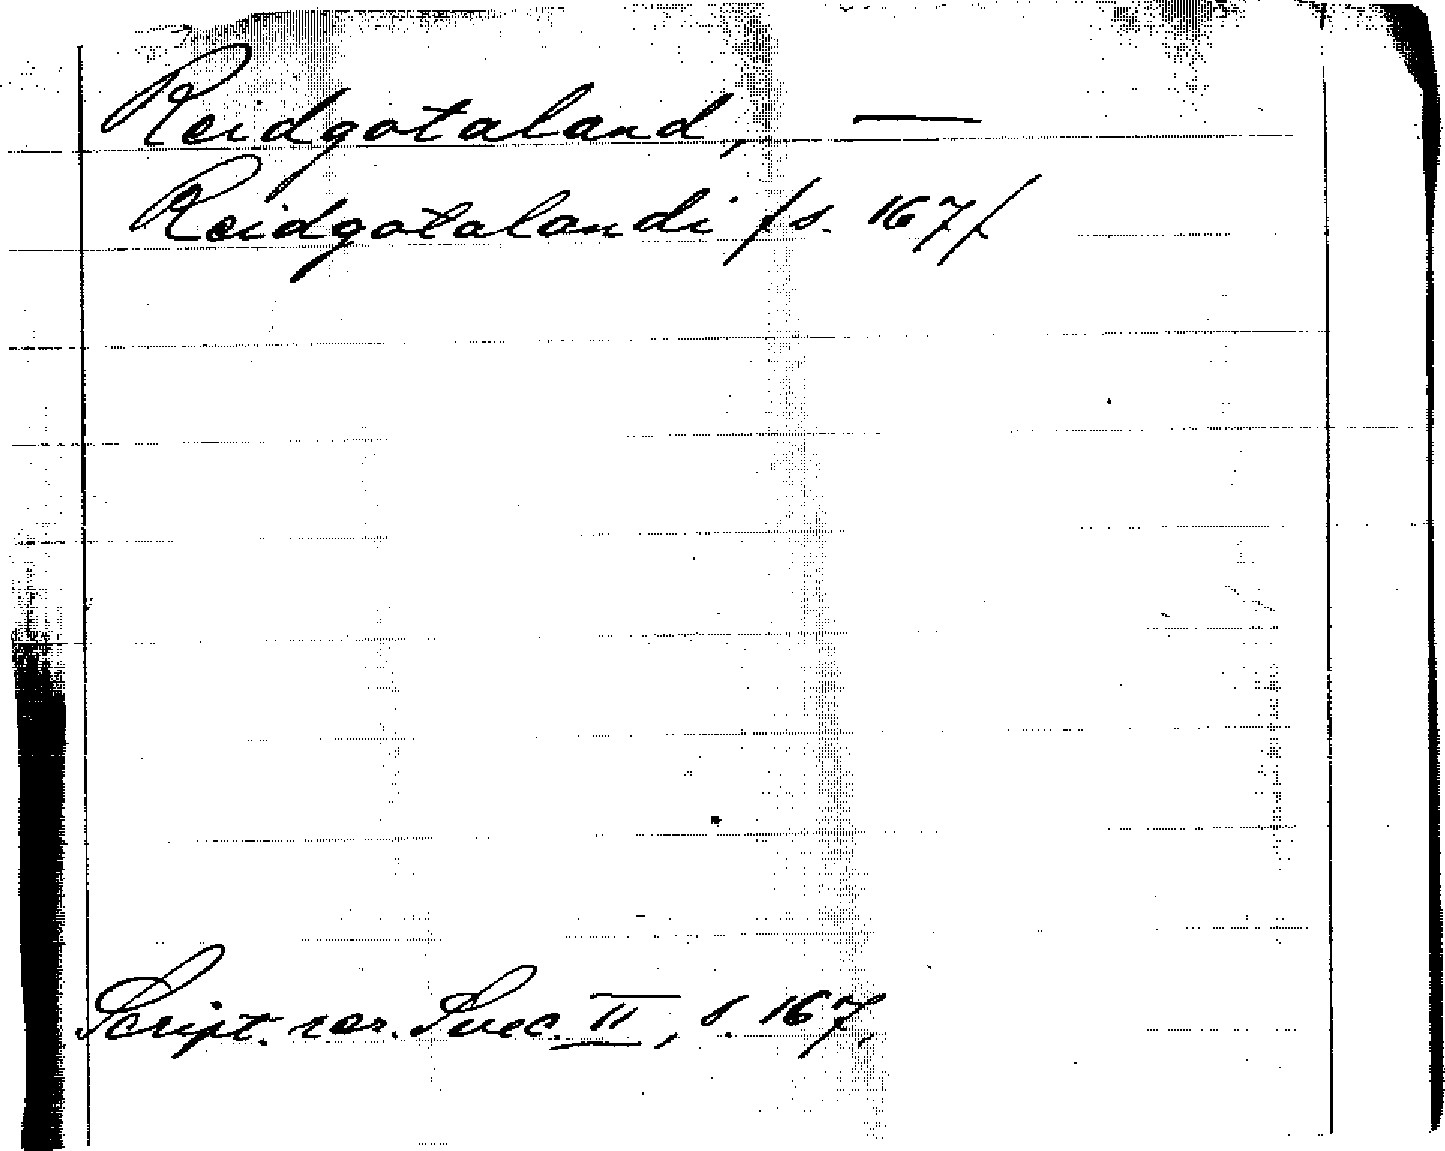 Reidgotaland, —
Reidgotalandi /s. 167/
Script. rer. Svec. II, s. 167.